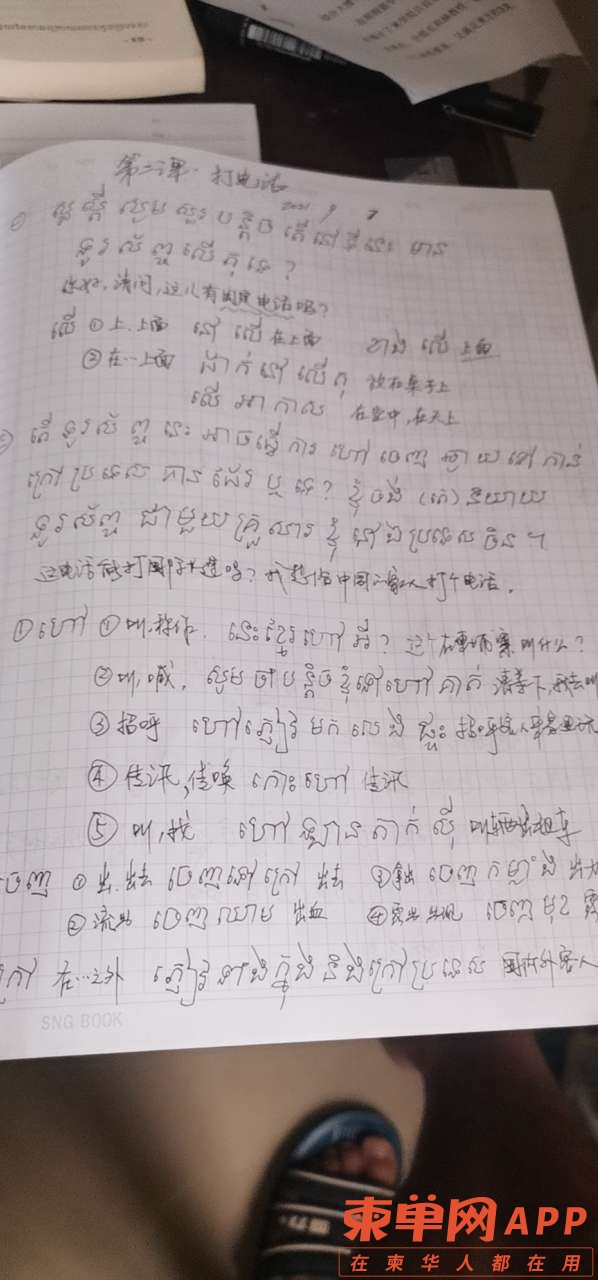 第二课. 打电话
① សួស្តី សូម សួរ បន្តិច តើ នៅ ទីនេះ មាន
ទូរស័ព្ទ លើ តុ ទេ ?
你好, 请问, 这儿有固定电话吗?
លើ ① 上. 上面 នៅ លើ 在上面 ខាង លើ 上面
② 在…上面 ដាក់ នៅ លើ តុ 放在桌子上
លើ អាកាស 在空中, 在天上
តើ ទូរស័ព្ទ នេះ អាច ធ្វើ ការ ហៅ ចេញ ឆ្ងាយ ទៅ កាន់
ក្រៅ ប្រទេស បាន ដែរ ឬ ទេ ? ខ្ញុំ ចង់ (តេ) និយាយ
ទូរស័ព្ទ ជាមួយ គ្រួសារ ខ្ញុំ នៅឯ ប្រទេស ចិន ។
这电话能打国际长途吗? 我想给中国的家人打个电话.
① ហៅ ① 叫, 称作. នេះ ខ្មែរ ហៅ អី ? 这个在柬埔寨叫什么?
② 叫, 喊. សូម ចាំ បន្តិច ខ្ញុំ ទៅ ហៅ គាត់ 请等下, 我去叫
③ 招呼 ហៅ ភ្ញៀវ មក លេង ផ្ទះ 招呼客人来家里玩
④ 传讯, 传唤 កោះ ហៅ 传讯
⑤ 叫, 找 ហៅ ឡាន តាក់ ស៊ី 叫辆出租车
ចេញ ① 出. 出去 ចេញ ទៅ ក្រៅ 出去 ③ 出 ចេញ កម្លាំង 出力
② 流出 ចេញ ឈាម 出血 ④ 露出 出现 ចេញ មុខ 露
ក្រៅ 在…之外 ភ្ញៀវ ទាំង ក្នុង និង ក្រៅ ប្រទេស 国内外客人
SNG BOOK
柬单网APP
在柬华人都在用